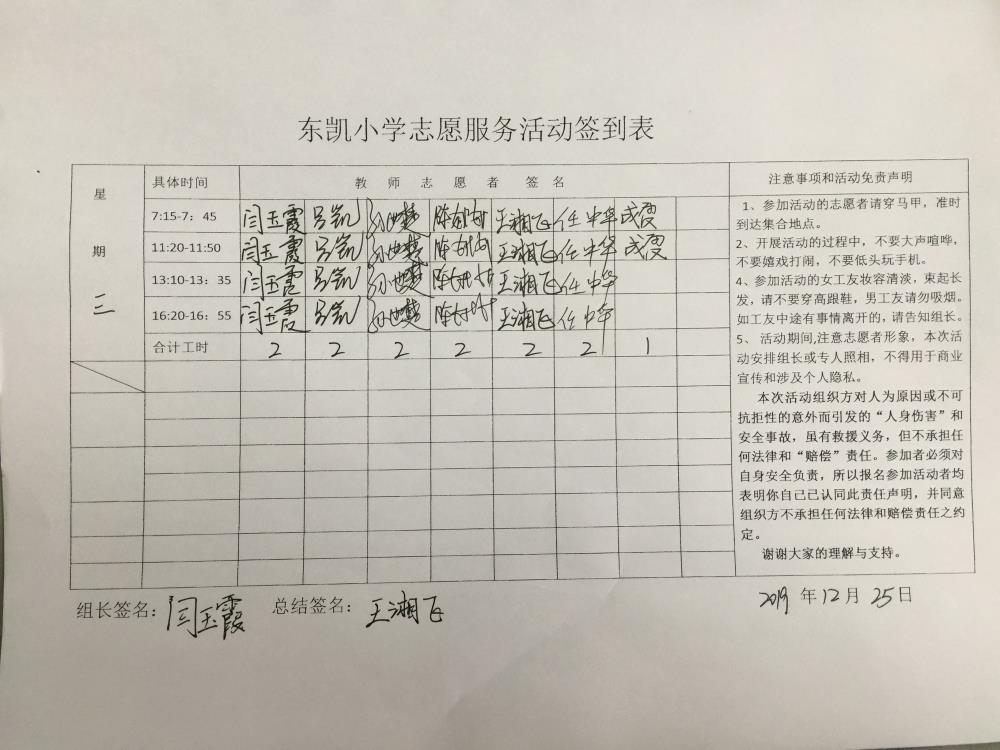 东凯小学志愿服务活动签到表
星期三
具体时间 教师志愿者签名
7:15-7：45 闫玉霞 吕凯 王湘飞 任中华
11:20-11:50 闫玉霞 吕凯 王湘飞 任中华
13:10-13：35 闫玉霞 吕凯 王湘飞 任中华
16:20-16：55 闫玉霞 吕凯 王湘飞 任中华
合计工时 2 2 2 2 2 2 1
注意事项和活动免责声明
1、参加活动的志愿者请穿马甲，准时
到达集合地点。
2、开展活动的过程中，不要大声喧哗，
不要嬉戏打闹，不要低头玩手机。
4、参加活动的女工友妆容清淡，束起长
发，请不要穿高跟鞋，男工友请勿吸烟。
如工友中途有事情离开的，请告知组长。
5、 活动期间,注意志愿者形象，本次活
动安排组长或专人照相，不得用于商业
宣传和涉及个人隐私。
本次活动组织方对人为原因或不可
抗拒性的意外而引发的“人身伤害”和
安全事故，虽有救援义务，但不承担任
何法律和“赔偿”责任。参加者必须对
自身安全负责，所以报名参加活动者均
表明你自己已认同此责任声明，并同意
组织方不承担任何法律和赔偿责任之约
定。
谢谢大家的理解与支持。
组长签名：闫玉霞 总结签名：王湘飞
2019 年 12 月 25 日